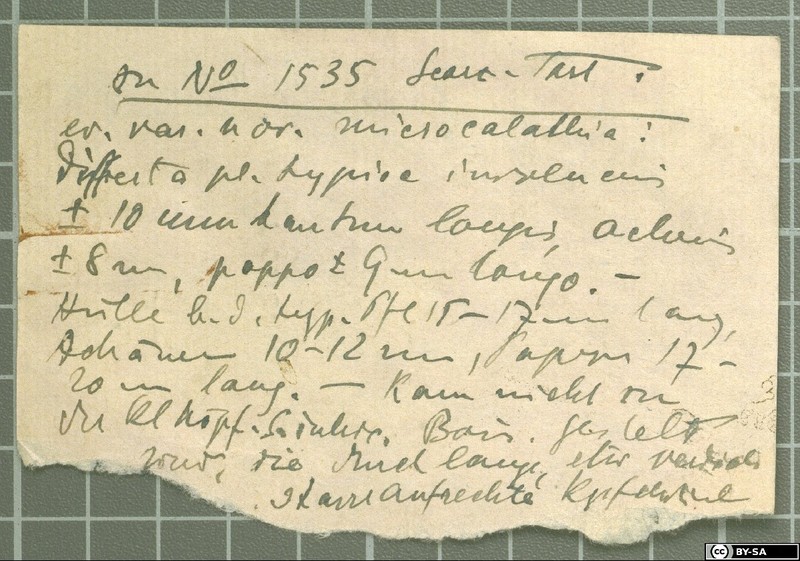 zu No 1535 Scorz. Tart.
ev. var. nov. microcalathia:
Differt a pl. typica involucris
± 10 mm tantum longis, acheniis
± 8 mm, pappo ± 9 mm longo. –
Hülle b. d. typ. Pfl 15–17 mm lang,
Achänen 10–12 mm, Pappus 17–
20 mm lang. – Kann nicht zu
der Kl Köpf. Boiss. gestellt
die durch lange,
starr aufrechte
BY-SA